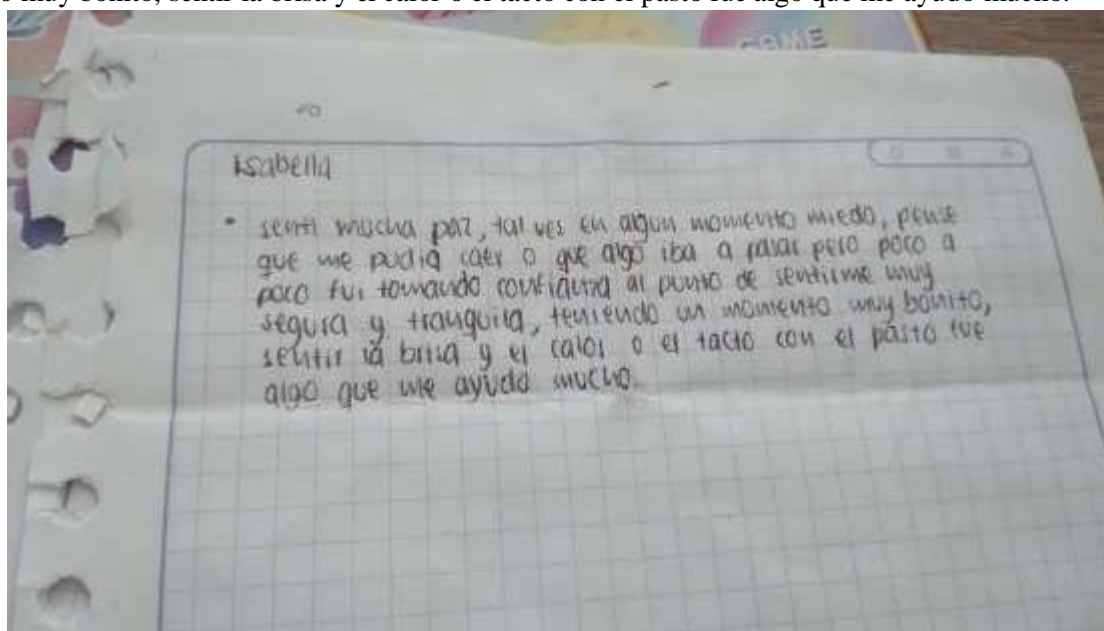 o muy bonito, sentir la brisa y el calor o el tacto con el pasto fue algo que me ayudó mucho.
GAME
Isabella
• senti mucha paz, tal ves en algun momento miedo, pense
que me pudia caer o que algo iba a pasar pero poco a
poco fui tomando confianza al punto de sentirme muy
segura y tranquila, teniendo un momento muy bonito,
sentir la brisa y el calor o el tacto con el pasto fue
algo que me ayudo mucho.